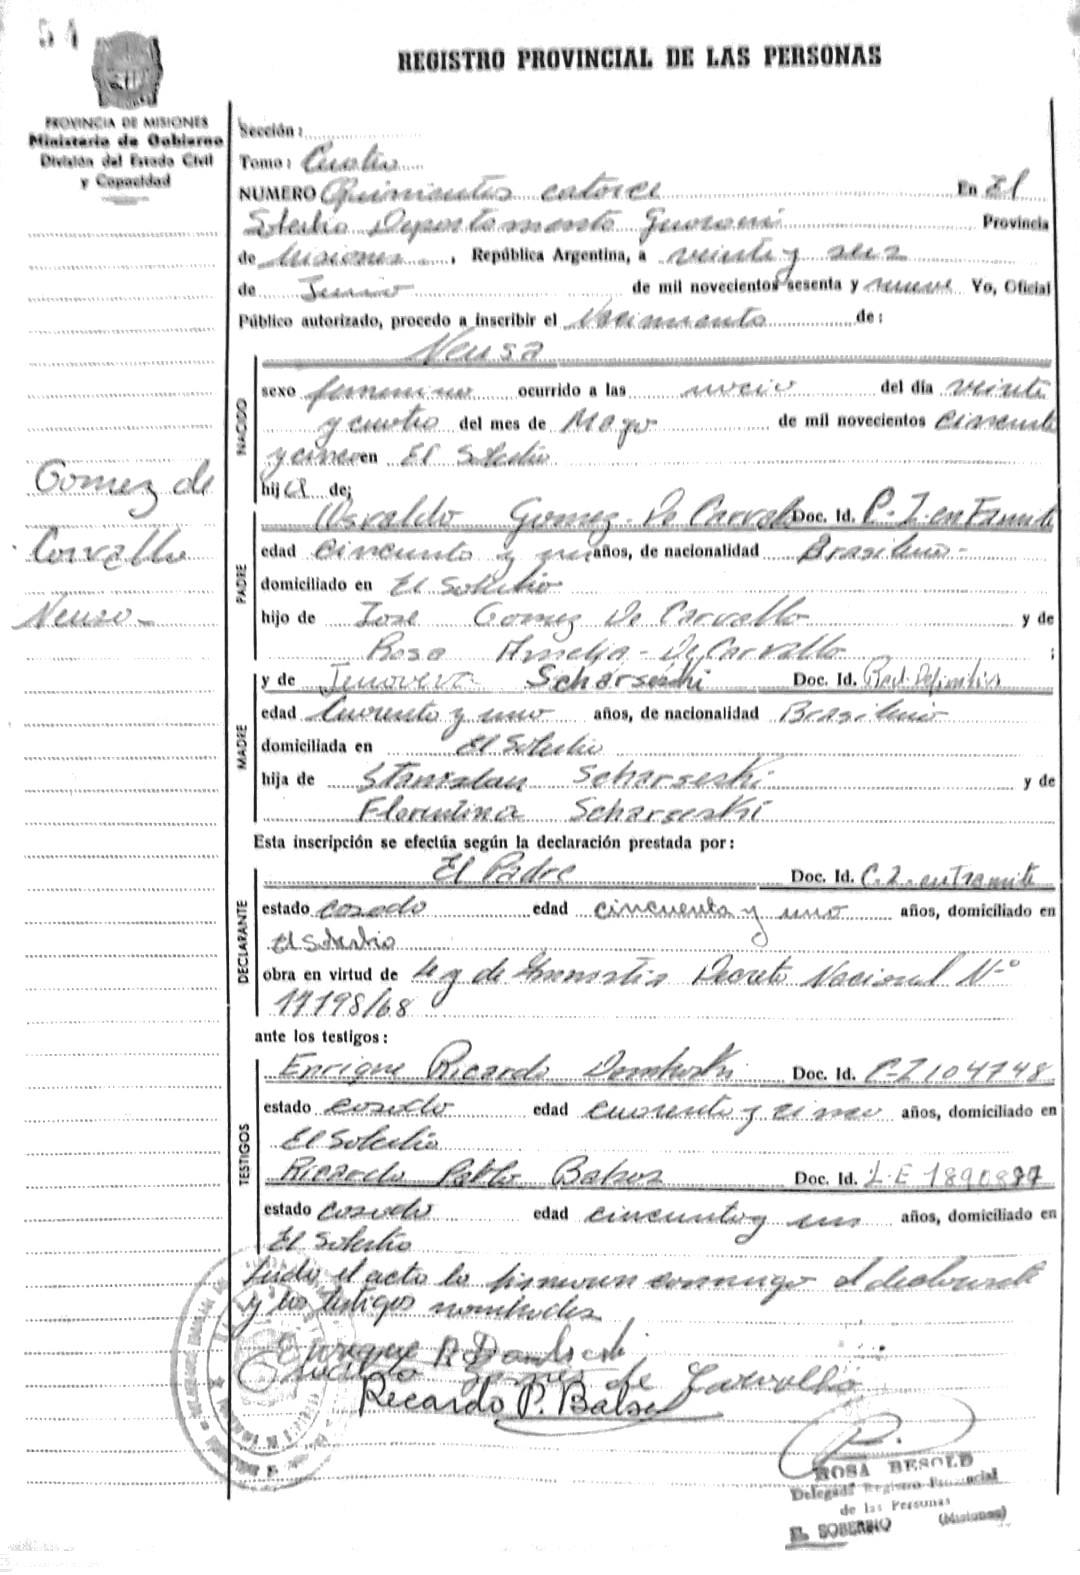 54
REGISTRO PROVINCIAL DE LAS PERSONAS
PROVINCIA DE MISIONES
Ministerio de Gobierno
División del Estado Civil
y Capacidad
Sección:
Tomo: Cuatro
NUMERO Quinientos catorce En El
Soberbio Departamento Guarani Provincia
de Misiones, República Argentina, a veinte y seis
de Junio de mil novecientos sesenta y nueve Yo, Oficial
Público autorizado, procedo a inscribir el Nacimiento de:
Neusa
NACIDO
sexo femenino ocurrido a las nueve del día veinte
y cuatro del mes de Mayo de mil novecientos cincuenta
y cinco en El Soberbio
hija de;
Gomez de
Carvallo
Neusa -
PADRE
Osvaldo Gomez - De Carvallo Doc. Id. C-I-en Tramite
edad cincuenta y uno años, de nacionalidad Brasileño -
domiciliado en El Soberbio
hijo de José Gomez De Carvallo y de
Rosa Amelia - De Carvallo ;
MADRE
y de Jenoveva Scharseski Doc. Id.
edad Cuarenta y uno años, de nacionalidad Brasileña
domiciliada en El Soberbio
hija de Stanislau Scharseski y de
Florentina Scharseski
Esta inscripción se efectúa según la declaración prestada por:
DECLARANTE
El Padre Doc. Id. C.I. en Tramite
estado casado edad cincuenta y uno años, domiciliado en
El Soberbio
obra en virtud de Ley de Amnistia Decreto Nacional N°
17198/68
ante los testigos:
TESTIGOS
Enrique Ricardo Domboski Doc. Id. C-I 104748
estado casado edad cuarenta y cinco años, domiciliado en
El Soberbio
Ricardo Pablo Balsez Doc. Id. L.E 1890877
estado casado edad cincuenta y un años, domiciliado en
El Soberbio
Leida el acta la firmaron conmigo el declarante
y los testigos nombrados
Enrique R.
Gomes de Carvallo
Ricardo P.
ROSA BESOLD
Delegada Registro Provincial
de las Personas
EL SOBERBIO (Misiones)